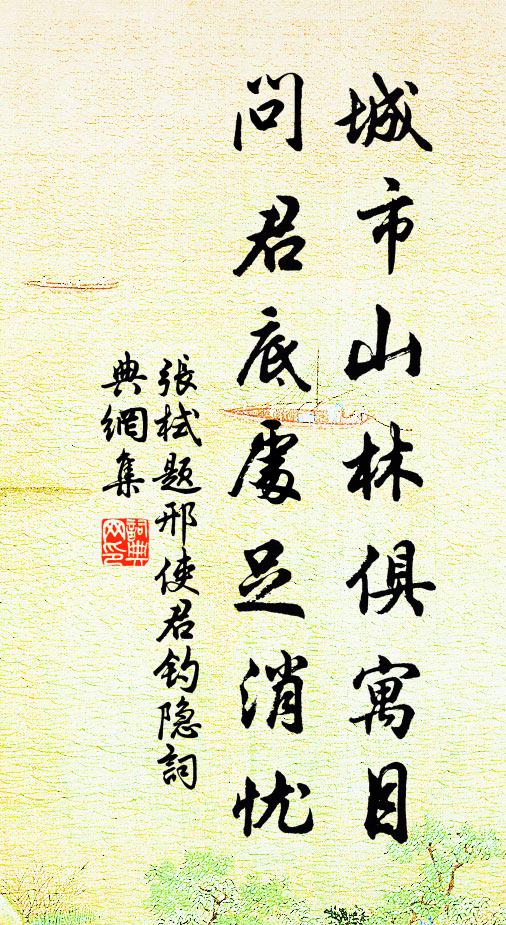 城市山林俱寓目
問君底處足消忧
張栻题邢使君钓隐詞
典網集
詞典
网印